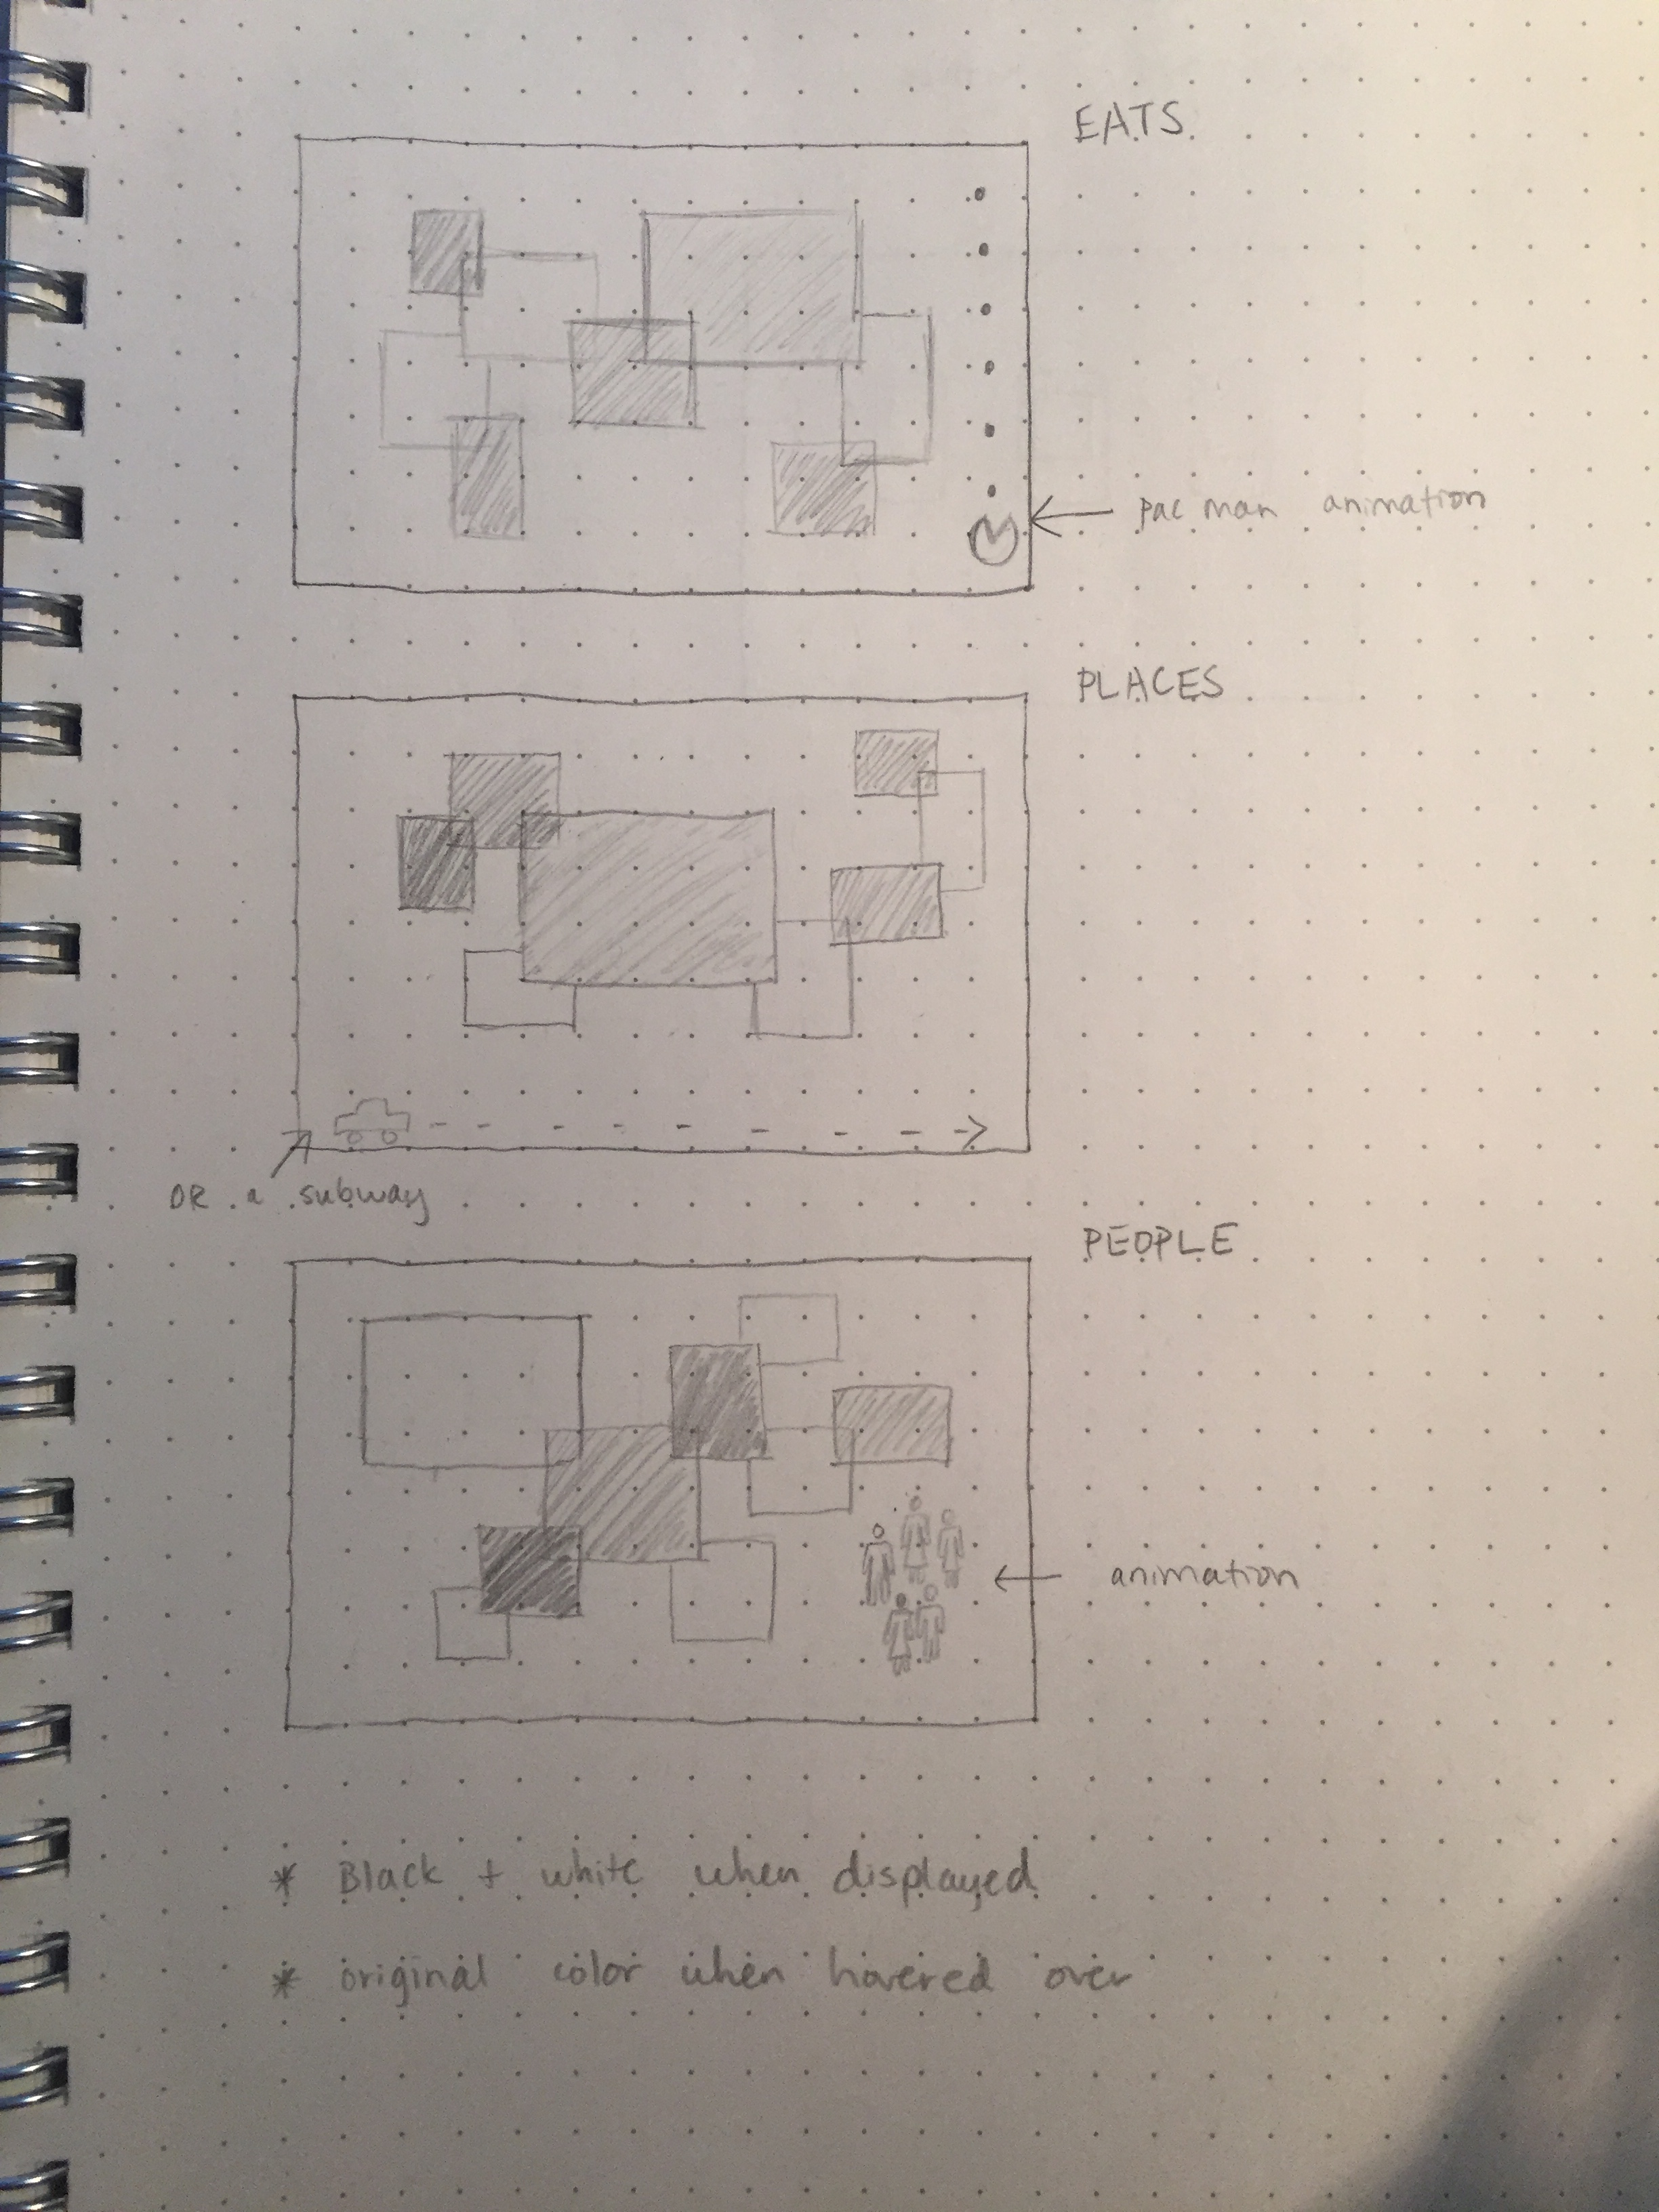 EATS
pac man animation
PLACES
OR a subway
PEOPLE
animation
* Black + white when displayed
* original color when hovered over